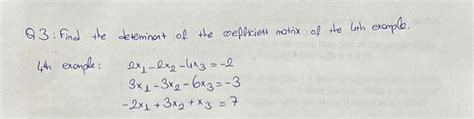 Q3: Find the determinant of the coefficient matrix of the 4th example.
4th example: 2x₁-2x₂-4x₃=-2
3x₁-3x₂-6x₃=-3
-2x₁+3x₂+x₃=7